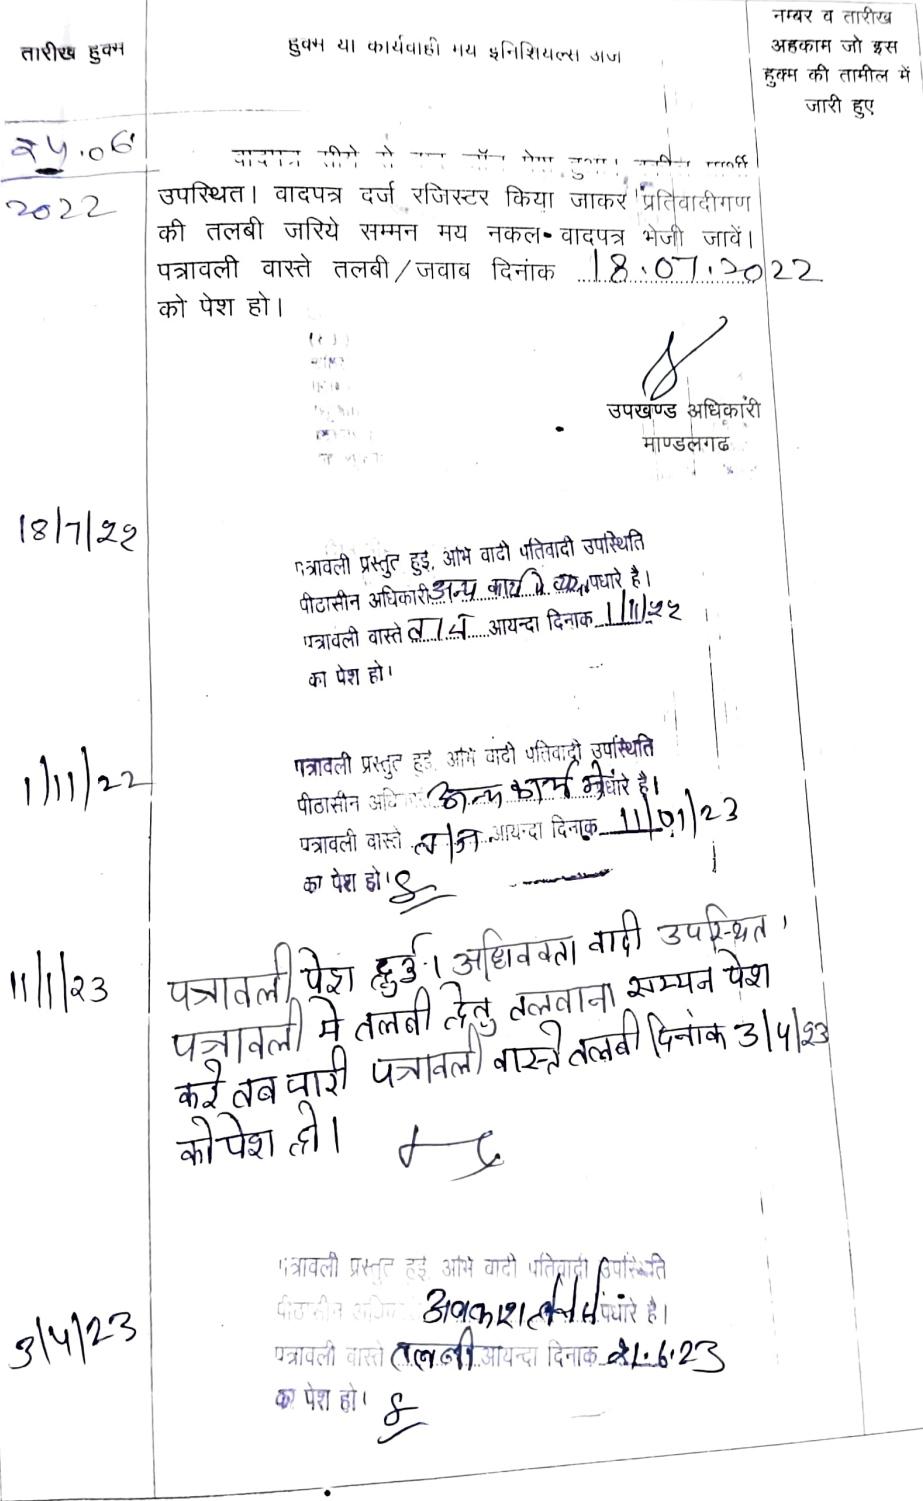 तारीख हुक्म
हुक्म या कार्यवाही मय इनिशियल्स जज
नम्बर व तारीख
अहकाम जो इस
हुक्म की तामील में
जारी हुए
२५.06
2022
उपस्थित। वादपत्र दर्ज रजिस्टर किया जाकर प्रतिवादीगण
की तलबी जरिये सम्मन मय नकल वादपत्र भेजी जावें।
पत्रावली वास्ते तलबी/जवाब दिनांक 18.07.2022
को पेश हो।
उपखण्ड अधिकारी
माण्डलगढ
18/7/22
पत्रावली प्रस्तुत हुई, अभि वादी प्रतिवादी उपस्थिति
पीठासीन अधिकारी अन्य कार्य में पधारे है।
पत्रावली वास्ते आयन्दा दिनाक 1/11/22
का पेश हो।
1/11/22
पत्रावली प्रस्तुत हुई, अभि वादी प्रतिवादी उपस्थिति
पीठासीन अधि अन्य कार्य में पधारे है।
पत्रावली वास्ते त/ज आयन्दा दिनाक 11/01/23
का पेश हो।
11/1/23
पत्रावली पेश हुई। अधिवक्ता वादी उपस्थित।
पत्रावली मे तलबी हेतु तलवाना सम्मन पेश
करे तब जारी पत्रावली वास्ते तलबी दिनांक 3/4/23
को पेश हो।
3/4/23
पत्रावली प्रस्तुत हुई, अभि वादी प्रतिवादी उपस्थिति
पीठासीन अधि अवकाश पधारे है।
पत्रावली वास्ते तलबी आयन्दा दिनाक 21.6.23
का पेश हो।